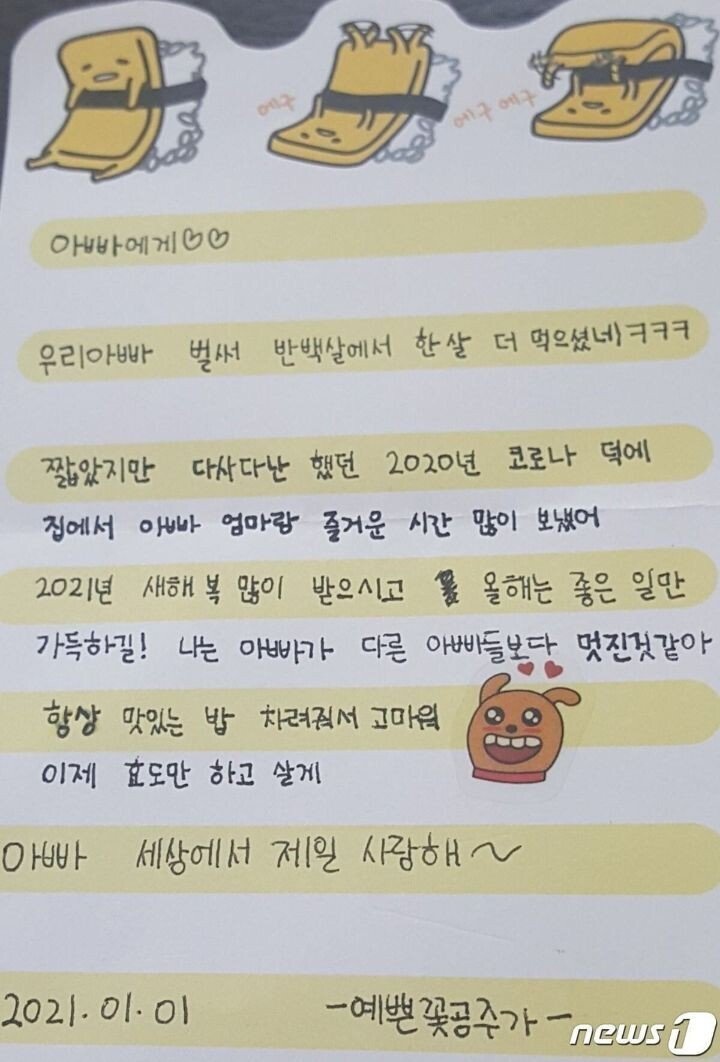 에구
에구 에구
아빠에게♡♡
우리아빠 벌써 반백살에서 한살 더 먹으셨네ㅋㅋㅋ
짧았지만 다사다난 했던 2020년 코로나 덕에
집에서 아빠 엄마랑 즐거운 시간 많이 보냈어
2021년 새해 복 많이 받으시고 올해는 좋은 일만
가득하길! 나는 아빠가 다른 아빠들보다 멋진것같아
항상 맛있는 밥 차려줘서 고마워
이제 효도만 하고 살게
아빠 세상에서 제일 사랑해~
2021.01.01 -예쁜꽃공주가-
news1